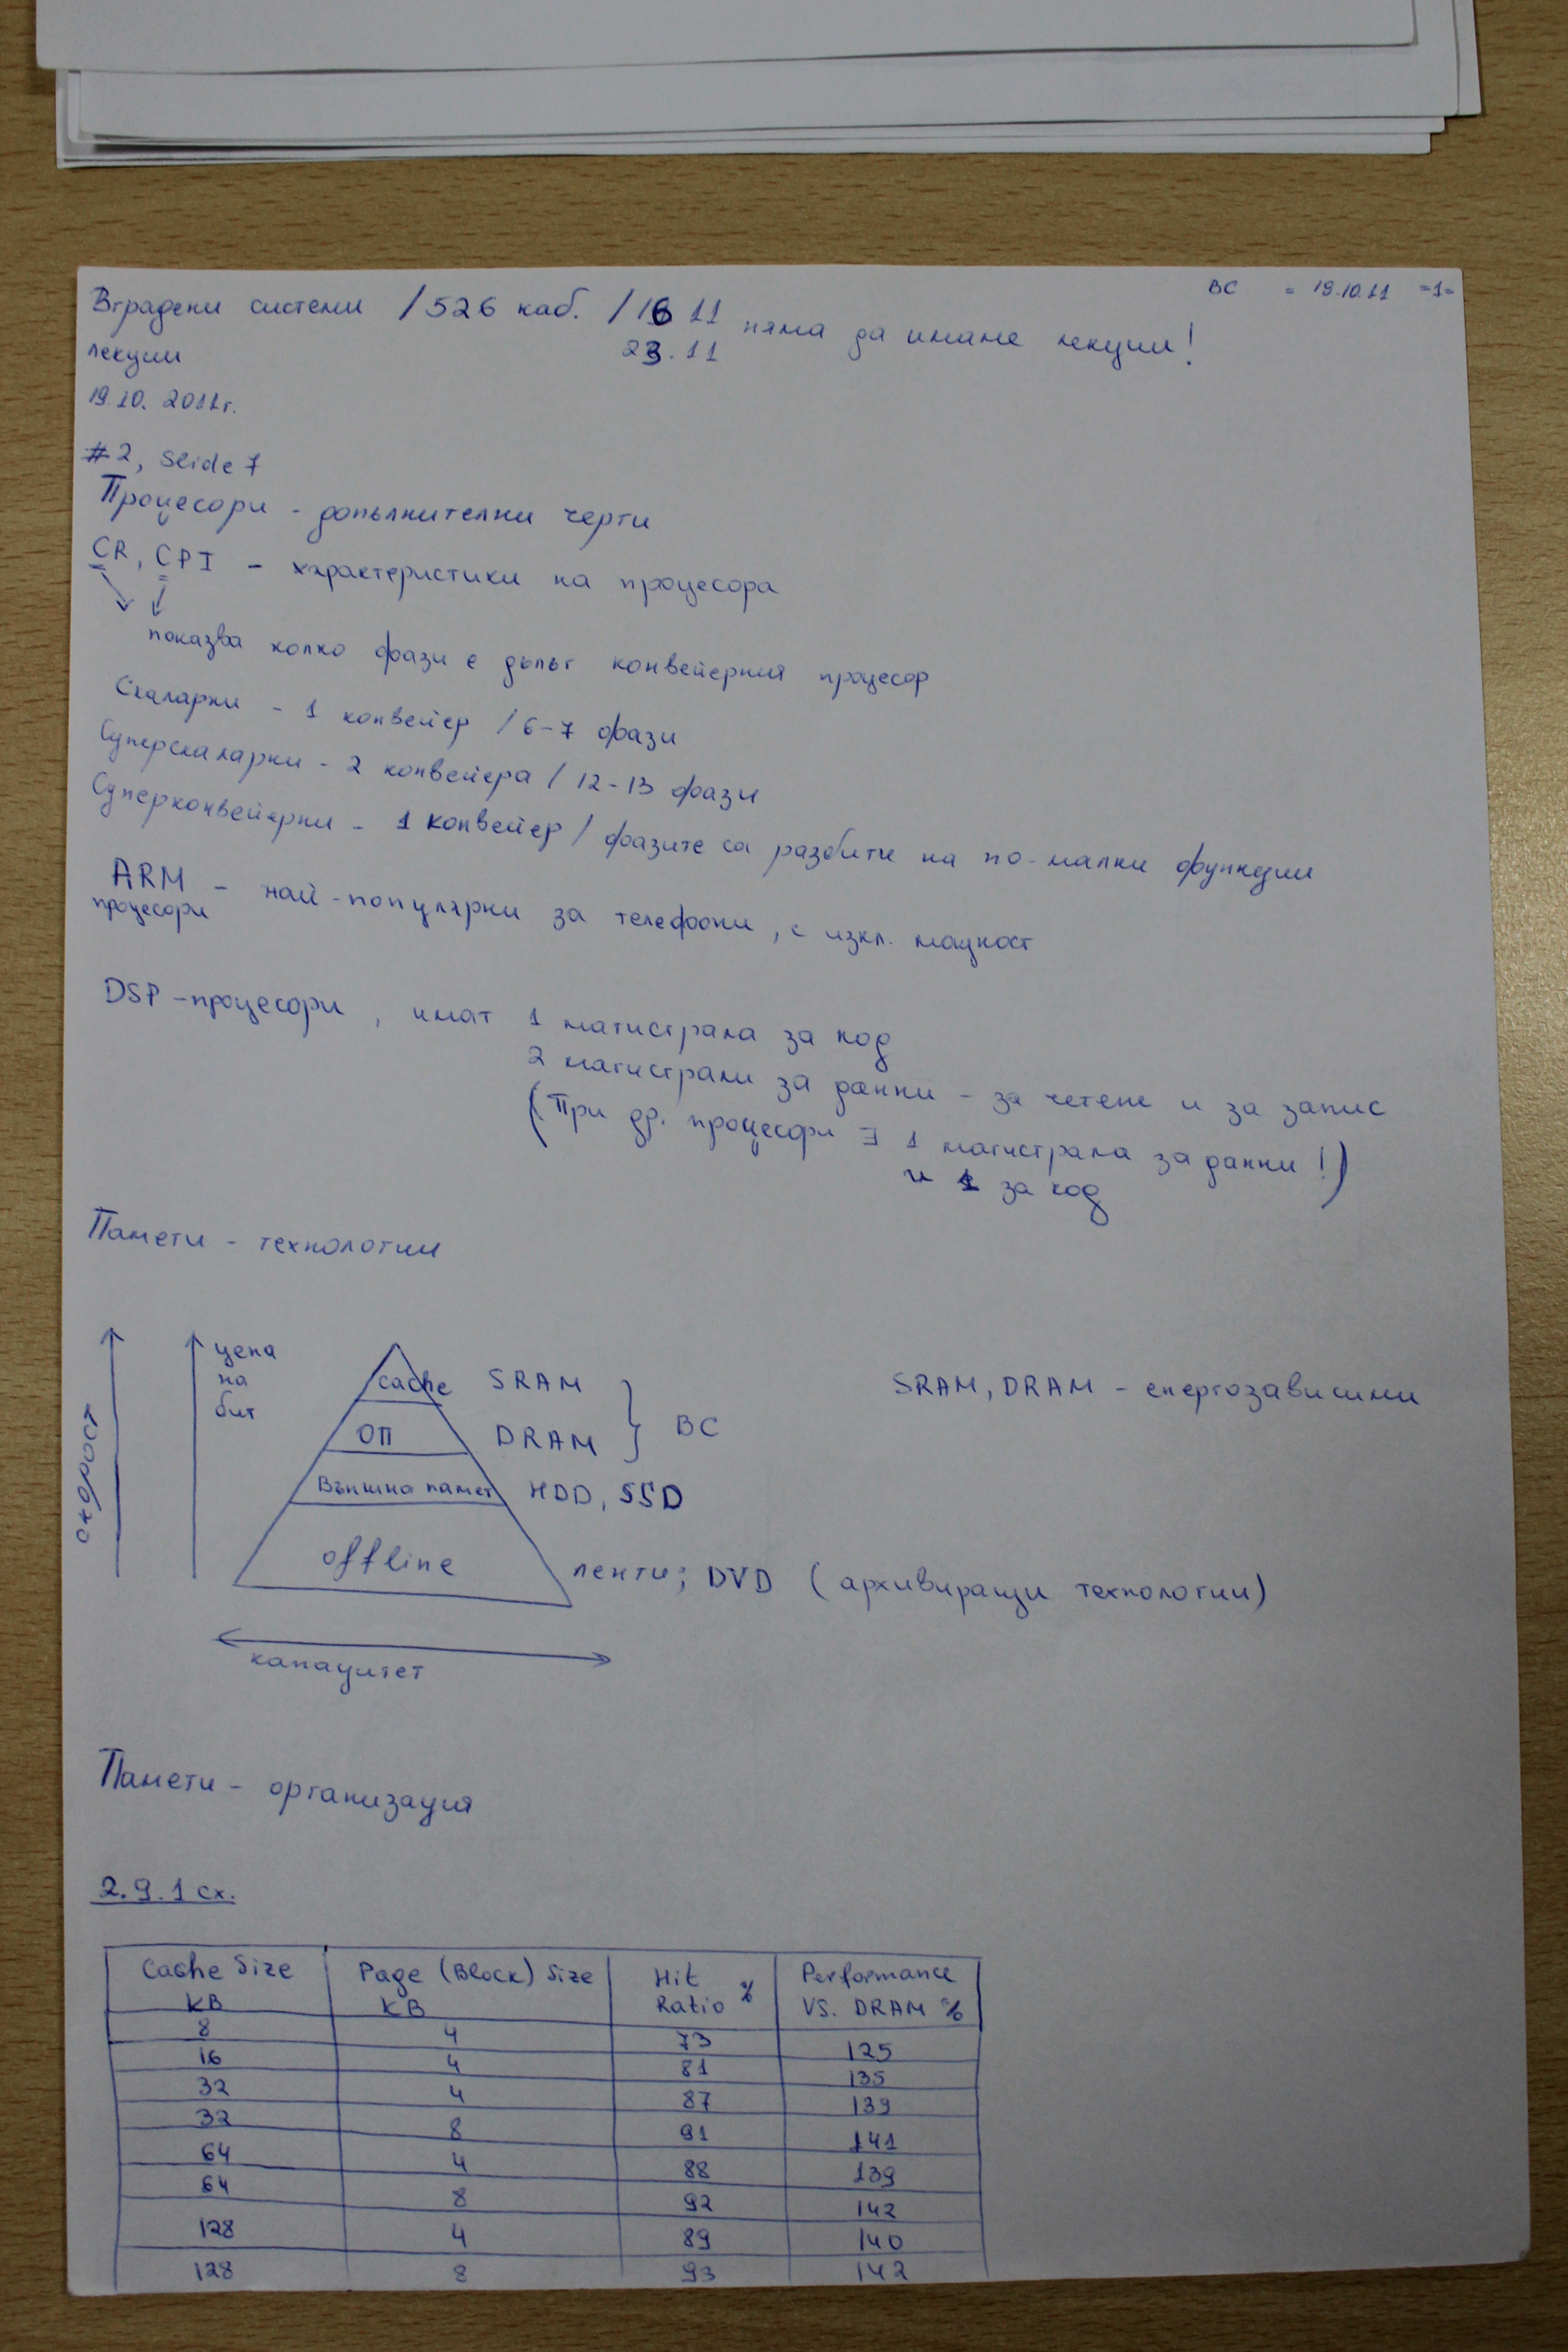 ВС = 19.10.11 =1=
Вградени системи / 526 каб. / 16 11 няма да имаме лекции!
лекции 23.11
19.10.2011г.
#2, Slide 7
Процесори - допълнителни черти
CR, CPI - характеристики на процесора
показва колко фази е дълъг конвейерния процесор
Скаларни - 1 конвейер / 6-7 фази
Суперскаларни - 2 конвейера / 12-13 фази
Суперконвейерни - 1 конвейер / фазите са разбити на по-малки функции
ARM - най-популярни за телефони, с изкл. мощност
процесори
DSP-процесори, имат 1 магистрала за код
2 магистрали за данни - за четене и за запис
(При др. процесори ∃ 1 магистрала за данни!)
и 1 за код
Памети - технологии
скорост
цена
на
бит
cache SRAM
ОП DRAM
} ВС
SRAM, DRAM - енергозависими
Външна памет HDD, SSD
offline ленти; DVD (архивиращи технологии)
капацитет
Памети - организация
2.9.1 сх.
Cache Size KB | Page (Block) Size KB | Hit Ratio % | Performance VS. DRAM %
8 4 73 125
16 4 81 135
32 4 87 139
32 8 91 141
64 4 88 139
64 8 92 142
128 4 89 140
128 8 93 142